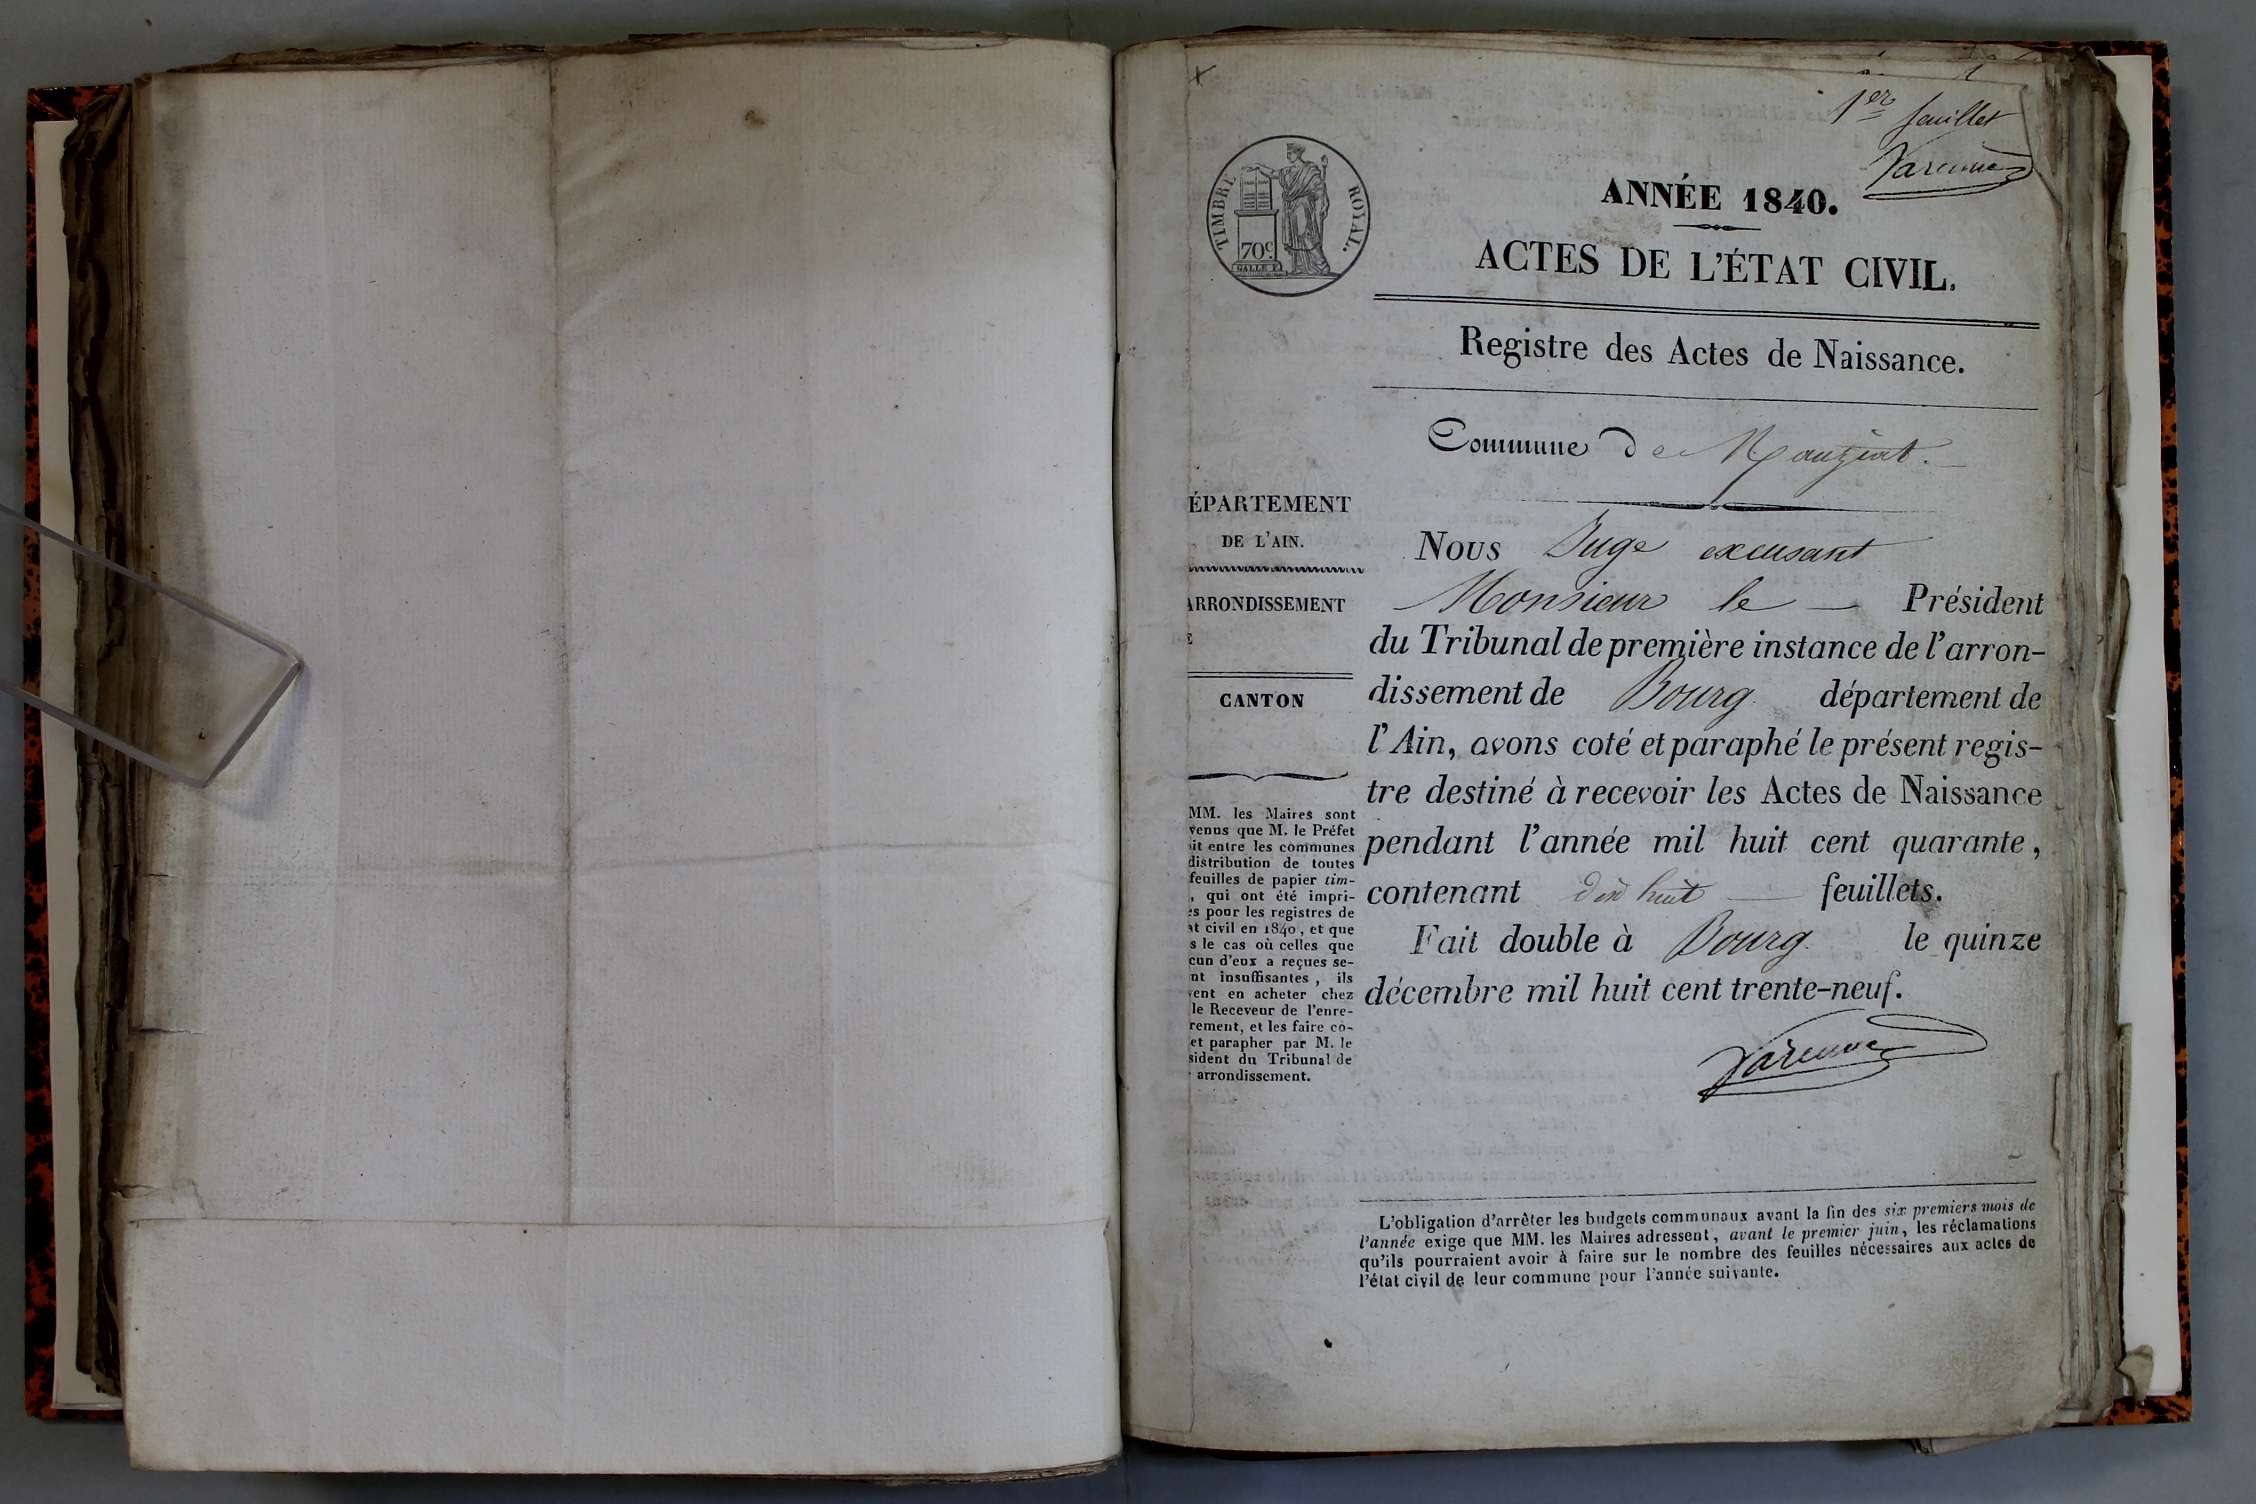 1er feuillet
Varenne
TIMBRE ROYAL.
70c
GALLE F.
ANNÉE 1840.
ACTES DE L'ÉTAT CIVIL.
Registre des Actes de Naissance.
Commune de Manziat.
ÉPARTEMENT
DE L'AIN.
ARRONDISSEMENT
E
CANTON
MM. les Maires sont
venus que M. le Préfet
it entre les communes
distribution de toutes
feuilles de papier tim-
, qui ont été impri-
es pour les registres de
at civil en 1840, et que
s le cas où celles que
cun d'eux a reçues se-
nt insuffisantes, ils
vent en acheter chez
le Receveur de l'enre-
rement, et les faire co-
et parapher par M. le
sident du Tribunal de
arrondissement.
Nous Juge excusant
Monsieur le — Président
du Tribunal de première instance de l'arron-
dissement de Bourg département de
l'Ain, avons coté et paraphé le présent regis-
tre destiné à recevoir les Actes de Naissance
pendant l'année mil huit cent quarante,
contenant dix huit — feuillets.
Fait double à Bourg le quinze
décembre mil huit cent trente-neuf.
Varenne
L'obligation d'arrêter les budgets communaux avant la fin des six premiers mois de
l'année exige que MM. les Maires adressent, avant le premier juin, les réclamations
qu'ils pourraient avoir à faire sur le nombre des feuilles nécessaires aux actes de
l'état civil de leur commune pour l'année suivante.